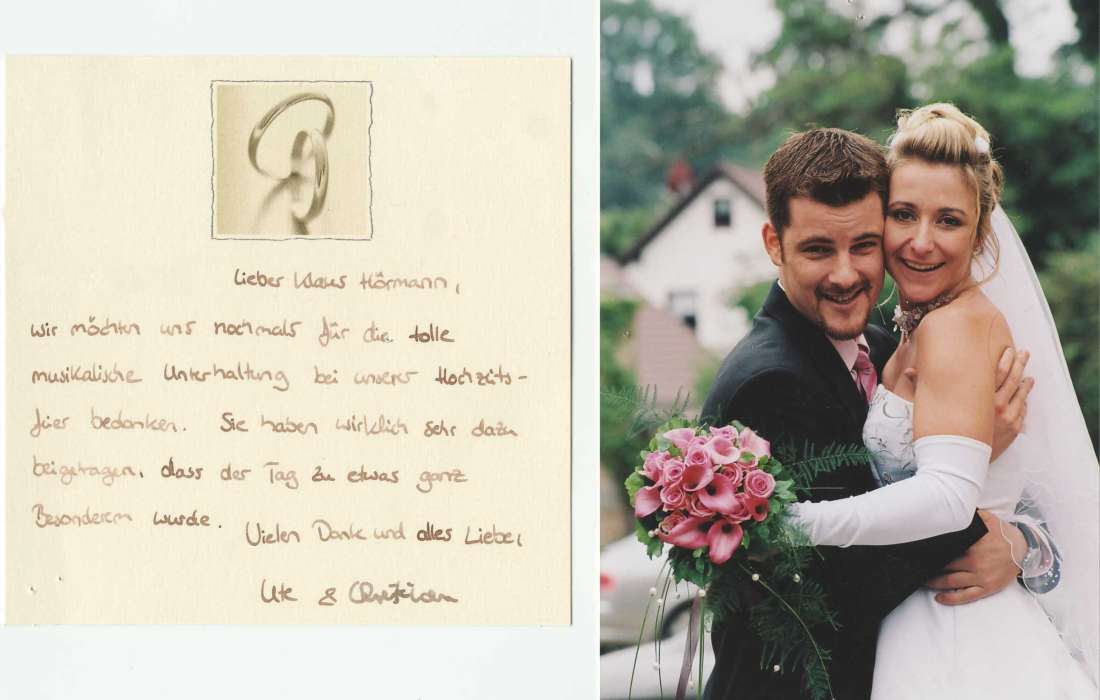 Lieber Klaus Hörmann,
wir möchten uns nochmals für die tolle
musikalische Unterhaltung bei unserer Hochzeits-
feier bedanken. Sie haben wirklich sehr dazu
beigetragen, dass der Tag zu etwas ganz
Besonderem wurde.
Vielen Dank und alles Liebe,
Ute & Christian